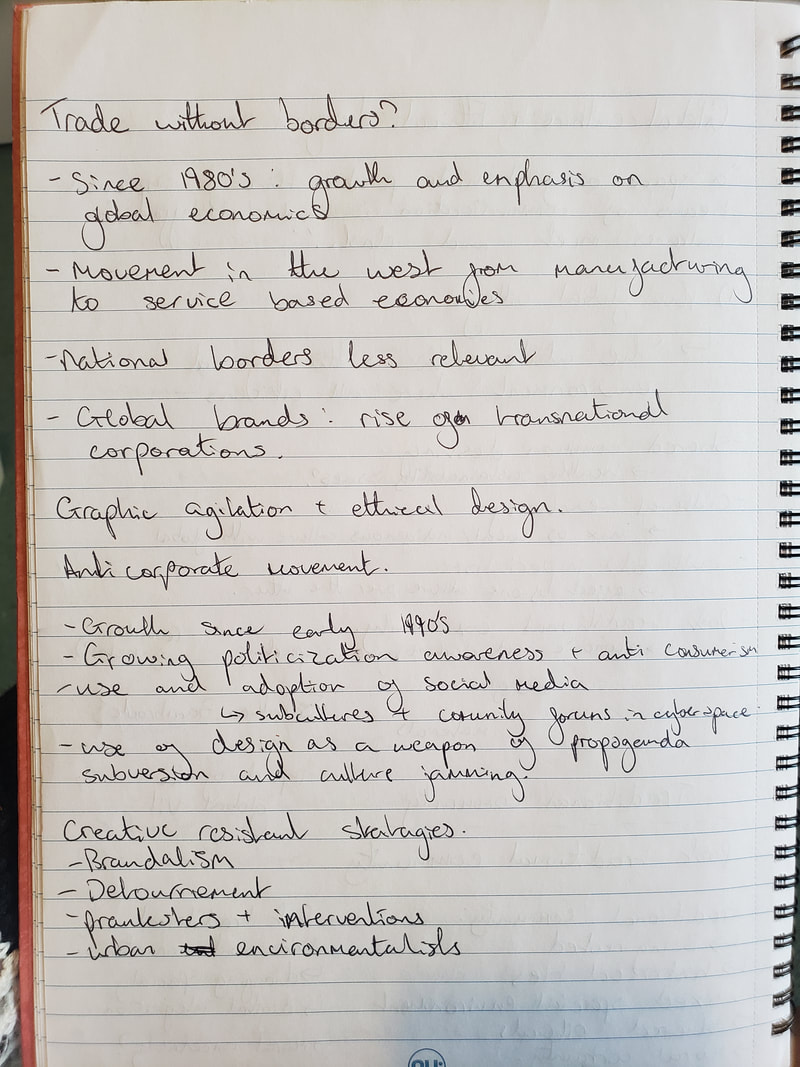 Trade without borders?
- Since 1980's : growth and emphasis on
global economics
- Movement in the west from manufacturing
to service based economies
- National borders less relevant
- Global brands : rise of transnational
corporations.
Graphic agitation + ethical design.
Anti corporate movement.
- Growth since early 1990's
- Growing politicization awareness + anti consumerism
- use and adoption of social media
↳ subcultures + comunity forums in cyberspace
- use of design as a weapon of propoganda
subversion and culture jamming.
Creative resistant stratagies.
- Brandalism
- Detournement
- pranksters + interventions
- urban environmentalists